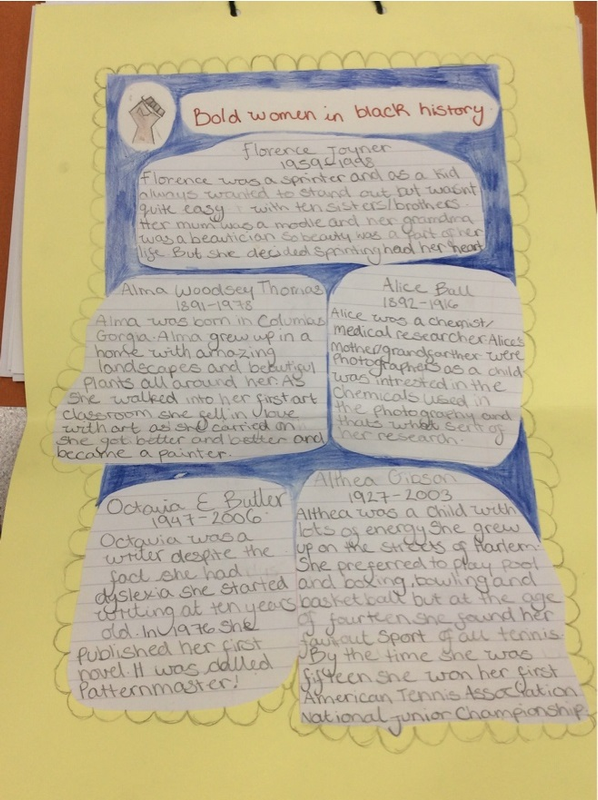 Bold women in black history
Florence Joyner
1959-1998
Florence was a sprinter and as a kid
always wanted to stand out but wasn't
quite easy with ten sisters/brothers
Her mum was a modle and her grandma
was a beautician so beauty was a part of her
life. But she decided sprinting had her heart
Alma Woodsey Thomas
1891-1978
Alma was born in Columbias
Gorgia. Alma grew up in a
home with amazing
landscapes and beautiful
plants all around her. As
she walked into her first art
classroom she fell in love
with art as she carried on
she got better and better and
became a painter.
Alice Ball
1892-1916
Alice was a chemist/
medical researcher Alice's
mother/grandfarther were
Photographers as a child
was intrested in the
chemicals used in
the photography and
thats what sert of
her research.
Octavia E Butler
1947-2006
Octavia was a
writer despite the
fact she had
dyslexia she started
writing at ten years
old. In 1976 she
published her first
novel. It was called
Patternmaster!
Althea Gibson
1927-2003
Althea was a child with
lots of energy she grew
up on the streets of Harlem
She preferred to play pool
and boxing, bowling and
basketball but at the age
of fourteen she found her
favourt sport of all tennis.
By the time she was
fifteen she won her first
American Tennis Association
National junior Championship